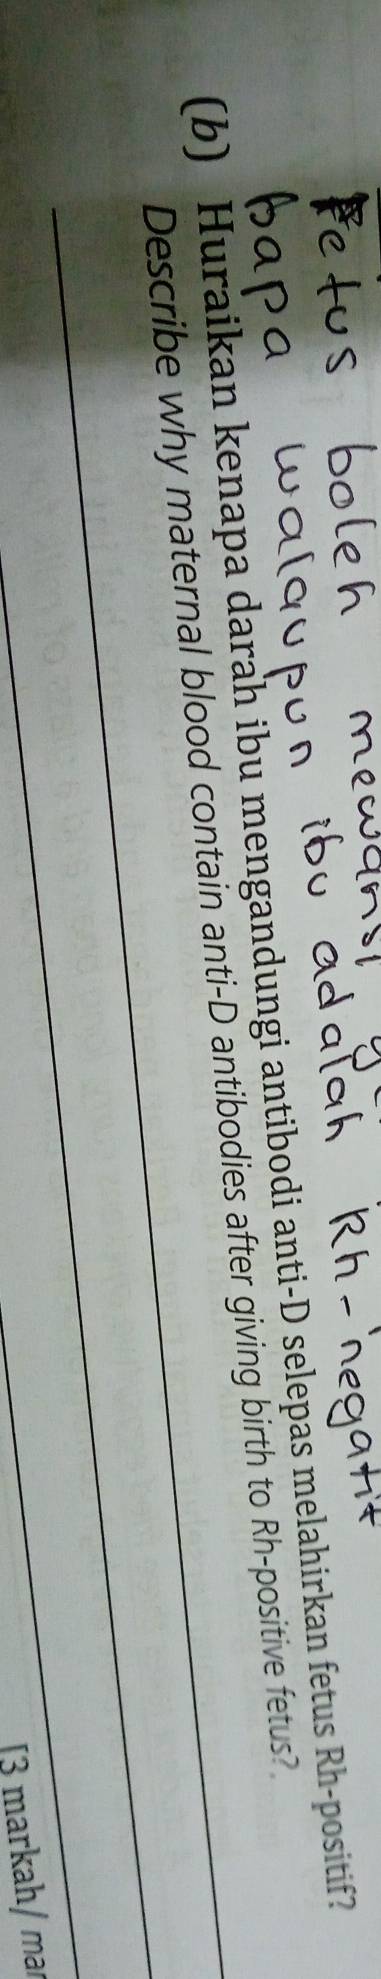 Fetus boleh mewarisi
bapa walaupun ibu adalah Rh-negatif
(b) Huraikan kenapa darah ibu mengandungi antibodi anti-D selepas melahirkan fetus Rh-positif?
Describe why maternal blood contain anti-D antibodies after giving birth to Rh-positive fetus?
[3 markah/